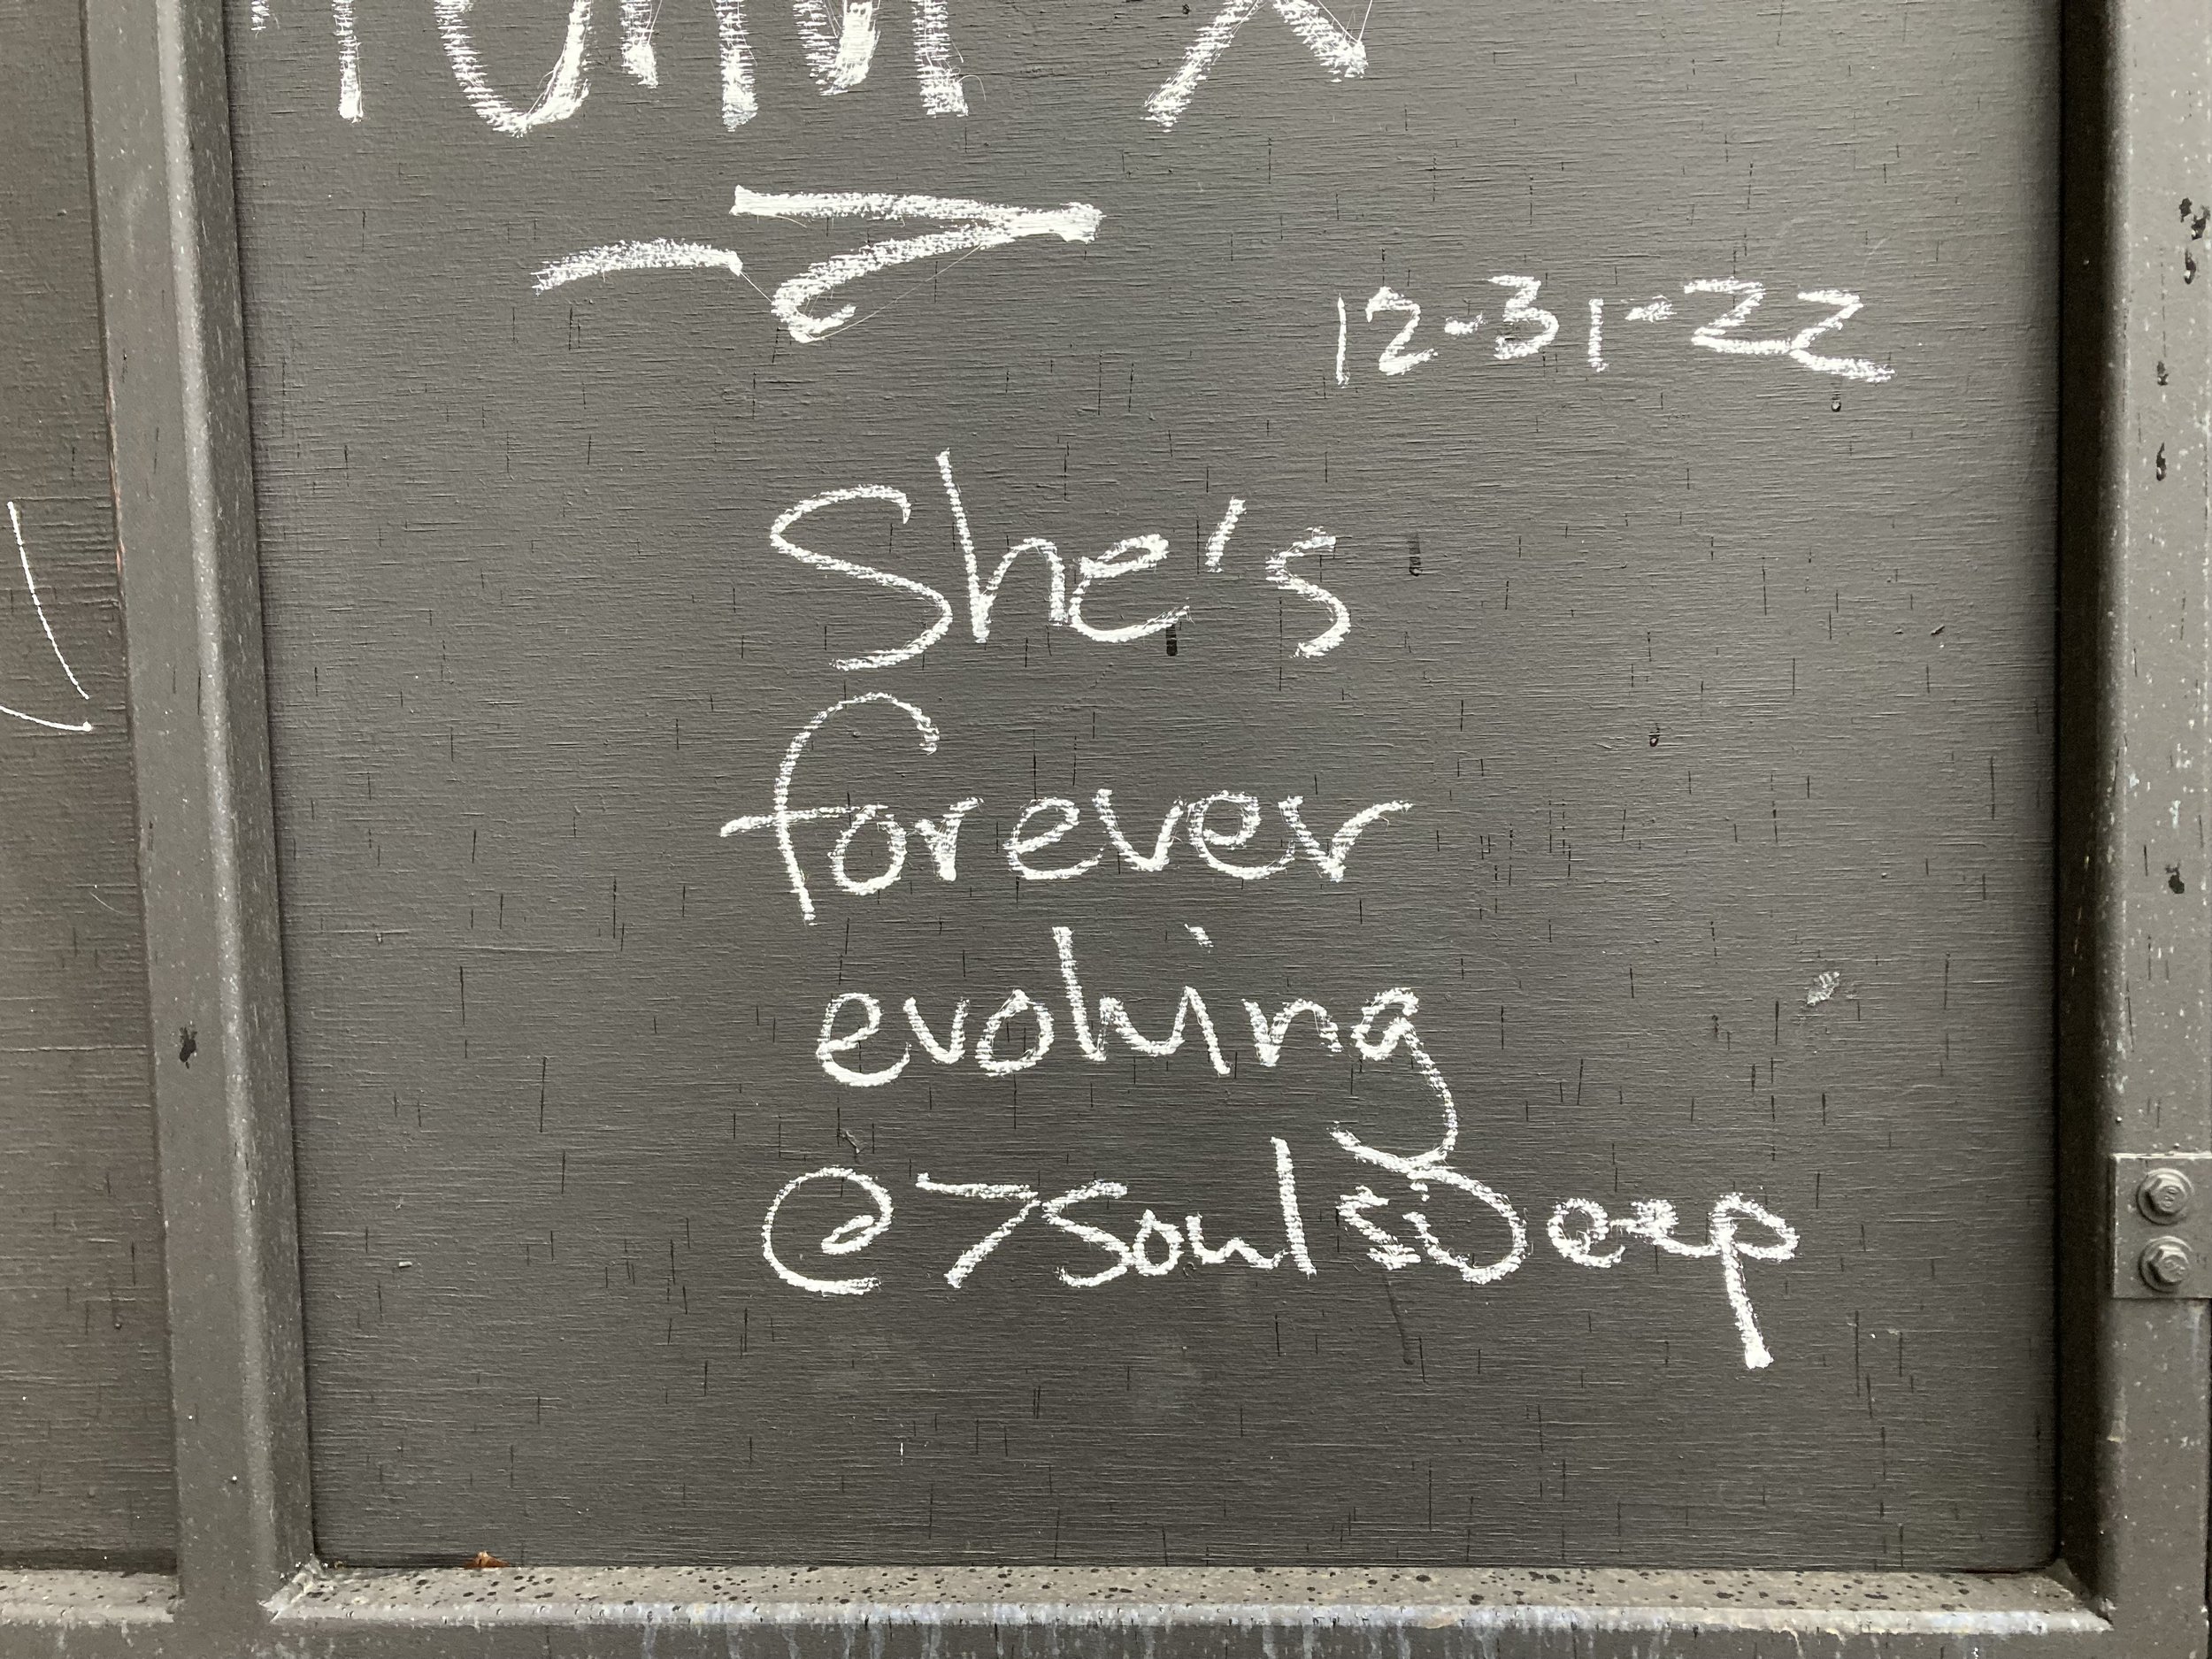 12-31-22
She's
forever
evolving
@7SoulsDeep